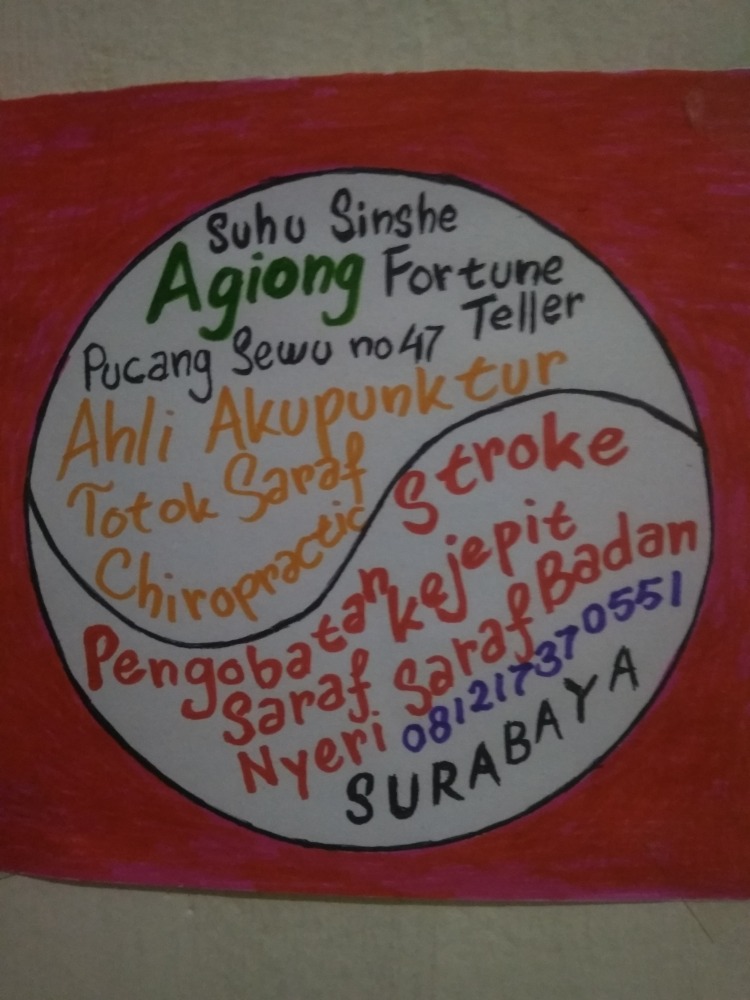 Suhu Sinshe
Agiong Fortune
Teller
Pucang Sewu no 47
Ahli Akupunktur
Totok Saraf
Chiropractic
Pengobatan Stroke
Saraf kejepit
Nyeri Saraf Badan
081217370551
SURABAYA